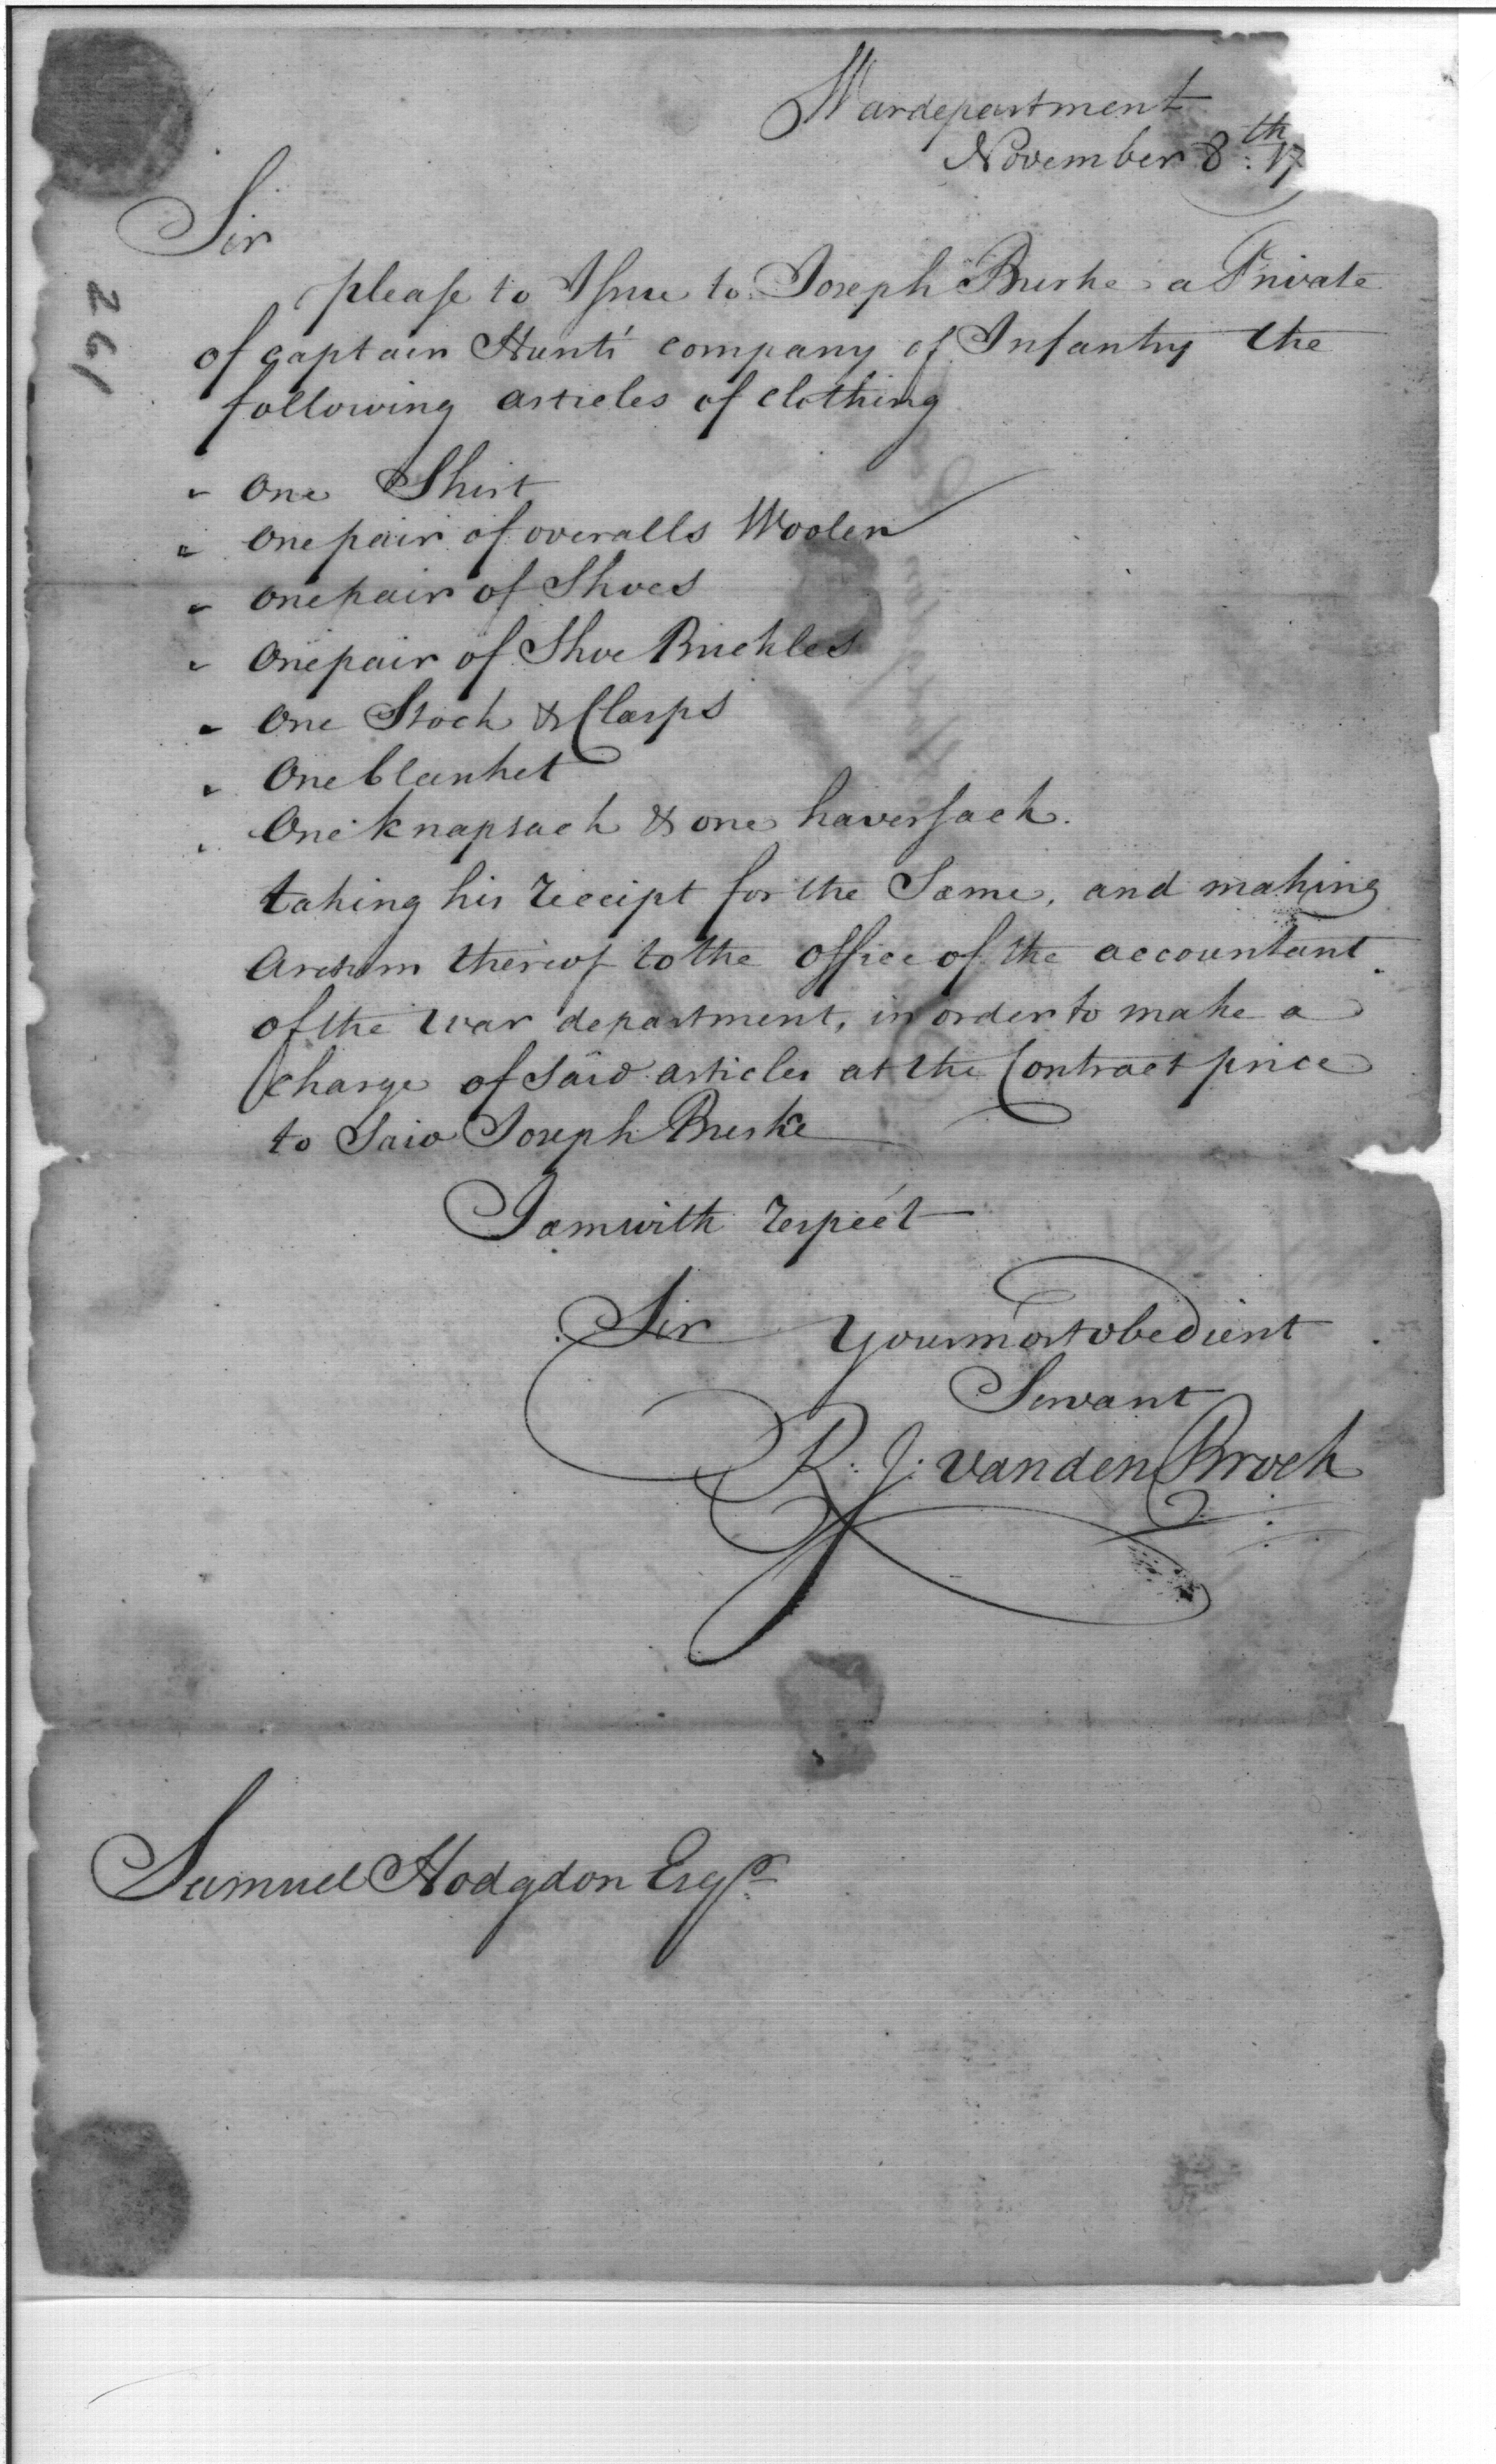 Wardepartment
November 8th: 17
Sir
please to Issue to Joseph Burke a Private
of captain Hunts' company of Infantry the
following articles of clothing
" One Shirt
" One pair of overalls Woolen
" One pair of Shoes
" One pair of Shoe Buckles
" One Stock & Clasps
" One blanket
" One knapsack & one haversack.
taking his receipt for the Same, and making
a return thereof to the office of the accountant
of the War department, in order to make a
charge of Said articles at the Contract price
to Said Joseph Burke
I am with respect
Sir your most obedient
Servant
R. J. vanden Broek
Samuel Hodgdon Esqr
261